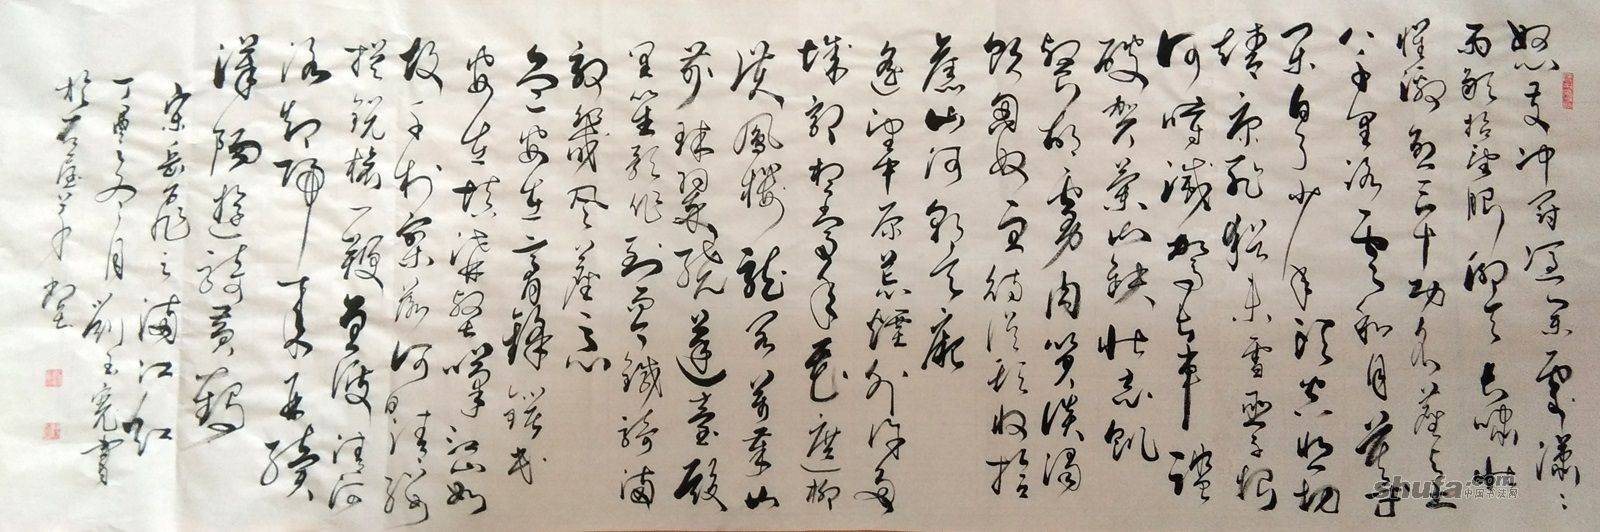 怒发冲冠凭阑处潇々
雨歇抬望眼仰天长啸壮
怀激烈三十功名尘与土
八千里路云和月莫等
闲白了少年头空悲切
靖康耻犹未雪臣子恨
何时灭驾长车踏
破贺兰山缺壮志饥
餐胡虏肉笑谈渴
饮匈奴血待从头收拾
旧山河朝天阙
遥望中原荒烟外许多
城郭想当年花遮柳
护凤楼龙阁万岁山
前珠翠绕蓬壶殿
里笙歌作到而今铁骑满
郊畿风尘恶
兵安在膏锋锷民
安在填沟壑叹江山如
故千村寥落何日请缨
提锐旅一鞭直渡清河
洛却归来再续
汉阳游骑黄鹤
宋岳飞之满江红
丁酉之冬月刘玉亮书
shufa.com
中国书法网